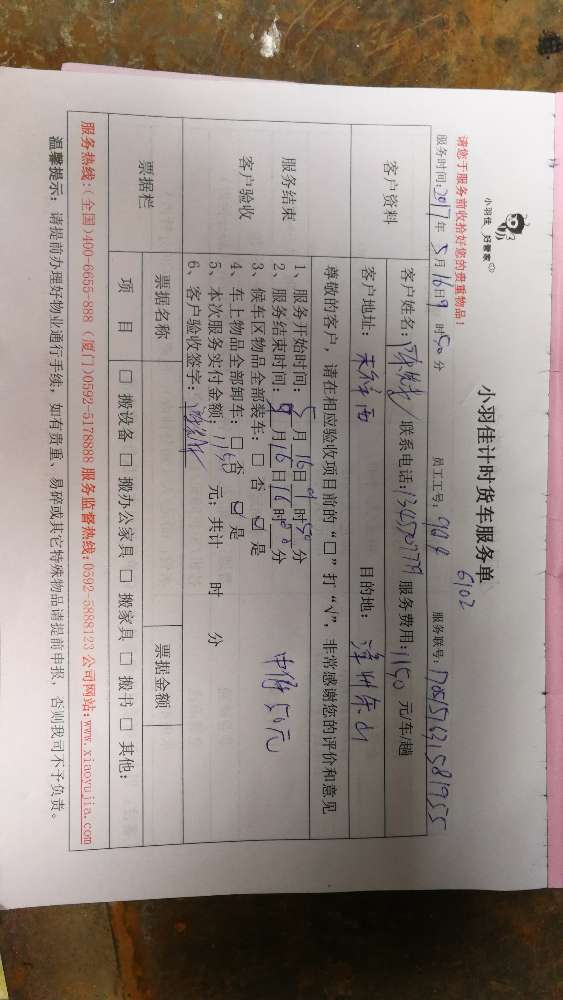 小羽佳 好管家
小羽佳计时货车服务单
6102
请您于服务前收拾好您的贵重物品！
服务时间: 2017 年 5 月 16 日 9 时 50 分 员工工号: 904 服务联号:
客户资料
客户姓名: 联系电话: 服务费用: 1150 元/车/趟
客户地址: 目的地: 漳州东山
尊敬的客户，请在相应验收项目前的“□”打“√”，非常感谢您的评价和意见
服务结束
客户验收
1、服务开始时间: 5 月 16 日 9 时 50 分
2、服务结束时间: 月 16 日 16 时 分
3、候车区物品全部装车: □ 否 ☑ 是
4、车上物品全部卸车: □ 否 ☑ 是
5、本次服务实付金额: 1150 元; 共计 时 分
6、客户验收签字:
50元
票据栏
票据名称 票据金额
项 目 □ 搬设备 □ 搬办公家具 □ 搬家具 □ 搬书 □ 其他:
服务热线:(全国)400-6655-888 (厦门)0592-5178888 服务监督热线:0592-5888123 公司网站:www.xiaoyujia.com
温馨提示: 请提前办理好物业通行手续，如有贵重、易碎或其它特殊物品请提前申报，否则我司不予负责。